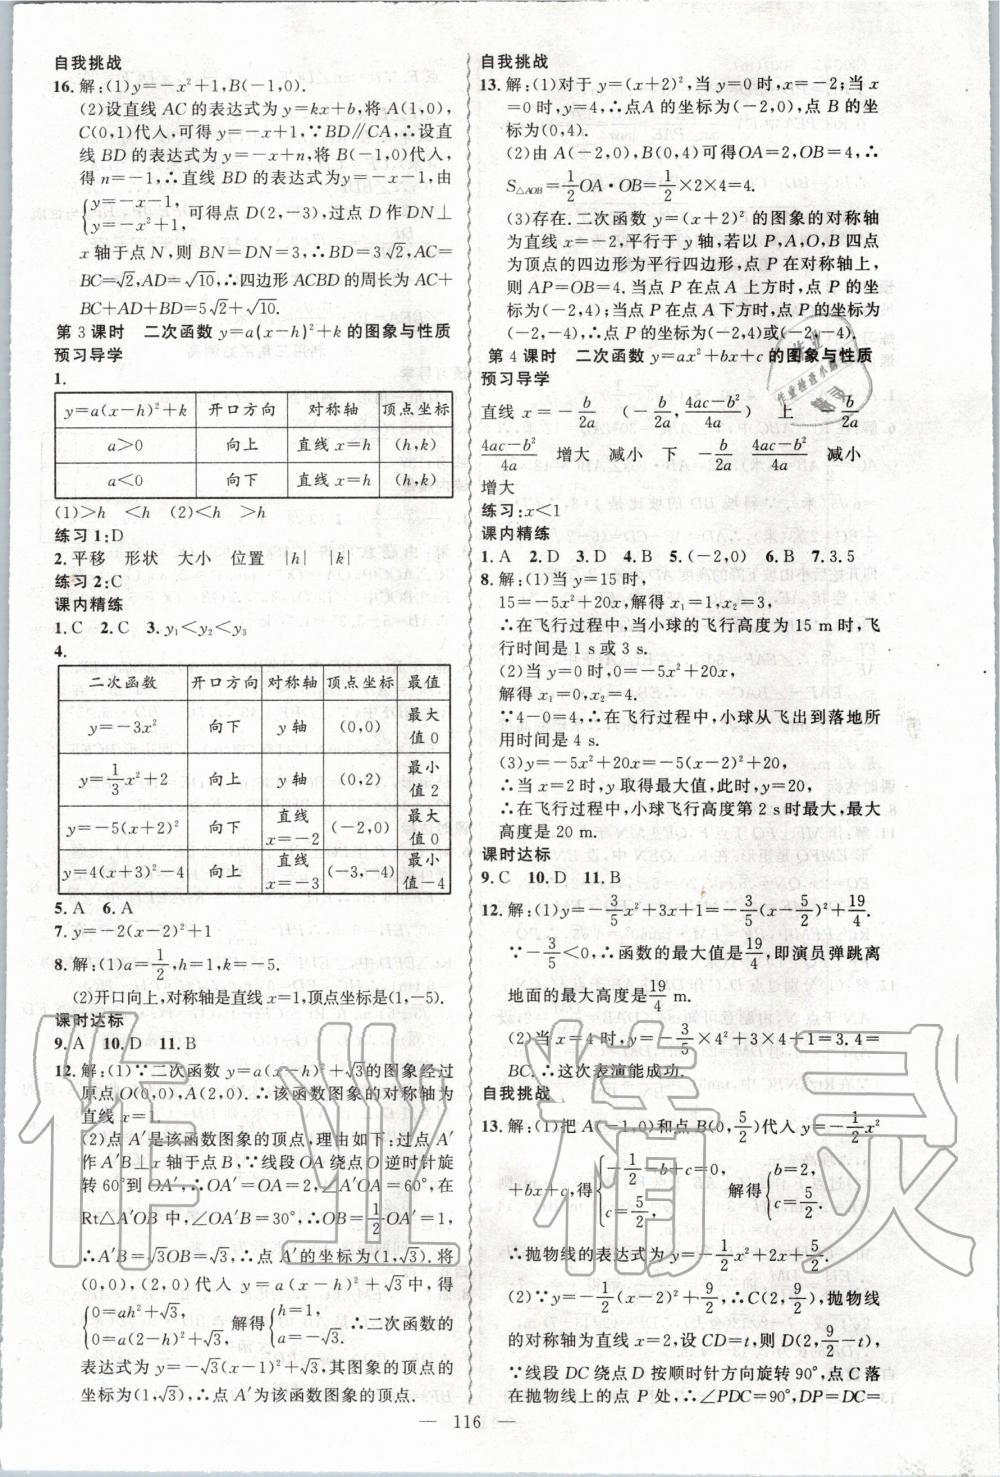 自我挑战
16. 解:(1)y=-x²+1,B(-1,0).
(2)设直线 AC 的表达式为 y=kx+b,将 A(1,0),
C(0,1)代入,可得 y=-x+1,∵BD∥CA,∴设直
线 BD 的表达式为 y=-x+n,将 B(-1,0)代入,
得 n=-1,∴直线 BD 的表达式为 y=-x-1,
{y=-x-1, y=-x²+1, 可得点 D(2,-3),过点 D 作 DN⊥
x 轴于点 N,则 BN=DN=3,∴BD=3√2,AC=
BC=√2,AD=√10,∴四边形 ACBD 的周长为 AC+
BC+AD+BD=5√2+√10.
第 3 课时 二次函数 y=a(x-h)²+k 的图象与性质
预习导学
1.
y=a(x-h)²+k 开口方向 对称轴 顶点坐标
a>0 向上 直线 x=h (h,k)
a<0 向下 直线 x=h (h,k)
(1)>h <h (2)<h >h
练习 1:D
2. 平移 形状 大小 位置 |h| |k|
练习 2:C
课内精练
1. C 2. C 3. y₁<y₂<y₃
4.
二次函数 开口方向 对称轴 顶点坐标 最值
y=-3x² 向下 y 轴 (0,0) 最大值 0
y=1/3x²+2 向上 y 轴 (0,2) 最小值 2
y=-5(x+2)² 向下 直线 x=-2 (-2,0) 最大值 0
y=4(x+3)²-4 向上 直线 x=-3 (-3,-4) 最小值-4
5. A 6. A
7. y=-2(x-2)²+1
8. 解:(1)a=1/2,h=1,k=-5.
(2)开口向上,对称轴是直线 x=1,顶点坐标是(1,-5).
课时达标
9. A 10. D 11. B
12. 解:(1)∵二次函数 y=a(x-h)²+√3的图象经过
原点 O(0,0),A(2,0),∴该函数图象的对称轴为
直线 x=1.
(2)点 A′是该函数图象的顶点,理由如下:过点 A′
作 A′B⊥x 轴于点 B,∵线段 OA 绕点 O 逆时针旋
转 60°到 OA′,∴OA′=OA=2,∠A′OA=60°,在
Rt△A′OB 中,∠OA′B=30°,∴OB=1/2OA′=1,
∴A′B=√3OB=√3,∴点 A′的坐标为(1,√3). 将
(0,0),(2,0)代入 y=a(x-h)²+√3中,得
{0=ah²+√3, 0=a(2-h)²+√3, 解得{h=1, a=-√3, ∴二次函数的
表达式为 y=-√3(x-1)²+√3,其图象的顶点的
坐标为(1,√3),∴点 A′为该函数图象的顶点.
自我挑战
13. 解:(1)对于 y=(x+2)²,当 y=0 时,x=-2;当 x
=0 时,y=4,∴点A 的坐标为(-2,0),点 B 的坐
标为(0,4).
(2)由 A(-2,0),B(0,4)可得OA=2,OB=4,∴
S△AOB=1/2OA·OB=1/2×2×4=4.
(3)存在. 二次函数 y=(x+2)² 的图象的对称轴
为直线 x=-2,平行于 y 轴,若以 P,A,O,B 四点
为顶点的四边形为平行四边形,点 P 在对称轴上,
则 AP=OB=4. 当点 P 在点 A 上方时,点 P 的坐
标为(-2,4);当点 P 在点 A 下方时,点 P 的坐标
为(-2,-4),∴点 P 的坐标为(-2,4)或(-2,-4).
第 4 课时 二次函数 y=ax²+bx+c 的图象与性质
预习导学
直线 x=-b/2a (-b/2a,4ac-b²/4a) 上 -b/2a
4ac-b²/4a 增大 减小 下 -b/2a 4ac-b²/4a 减小
增大
练习:x<1
课内精练
1. A 2. D 3. D 4. B 5. (-2,0) 6. B 7. 3,5
8. 解:(1)当 y=15时,
15=-5x²+20x,解得 x₁=1,x₂=3,
∴在飞行过程中,当小球的飞行高度为 15 m时,飞
行时间是 1 s或 3 s.
(2)当 y=0时,0=-5x²+20x,
解得 x₁=0,x₂=4.
∵4-0=4,∴在飞行过程中,小球从飞出到落地所
用时间是 4 s.
(3)y=-5x²+20x=-5(x-2)²+20,
∴当 x=2时,y 取得最大值,此时,y=20,
∴在飞行过程中,小球飞行高度第 2 s时最大,最大
高度是 20 m.
课时达标
9. C 10. D 11. B
12. 解:(1)y=-3/5x²+3x+1=-3/5(x-5/2)²+19/4.
∵-3/5<0,∴函数的最大值是19/4,即演员弹跳离
地面的最大高度是19/4 m.
(2)当 x=4 时,y=-3/5×4²+3×4+1=3.4=
BC.∴这次表演能成功.
自我挑战
13. 解:(1)把 A(-1,0)和点 B(0,5/2)代入 y=-1/2x²
+bx+c,得{-1/2-b+c=0, c=5/2, 解得{b=2, c=5/2.
∴抛物线的表达式为 y=-1/2x²+2x+5/2.
(2)∵y=-1/2(x-2)²+9/2,∴C(2,9/2),抛物线
的对称轴为直线 x=2,设 CD=t,则 D(2,9/2-t),
∵线段 DC 绕点 D 按顺时针方向旋转 90°,点 C 落
在抛物线上的点 P 处,∴∠PDC=90°,DP=DC=
— 116 —
作业精灵